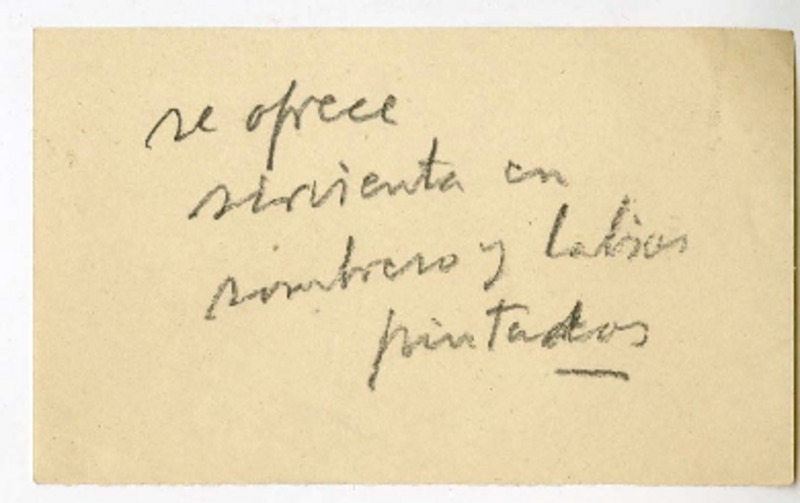 se ofrece
sirvienta en
sombrero y labios
pintados